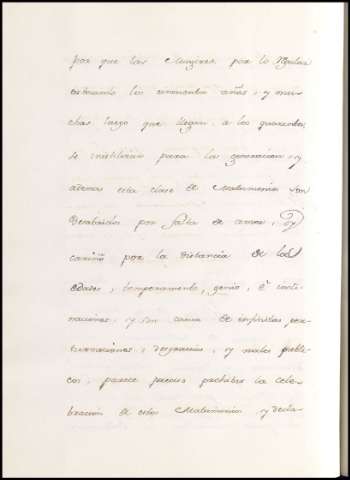 por que las Mugeres por lo regular
los cinquenta años, y mu-
chas luego que llegan a los quarenta,
se inutilizan para la generacion, y
ademas esta clase de Matrimonios son
por falta de amor, y
cariño por la distancia de las
edades, temperamento, genio, è incli-
naciones, y son causa de infinitas per-
turbaciones, desgracias, y males publi-
cos, parece preciso prohibir la cele-
bracion de estos Matrimonios y decla-